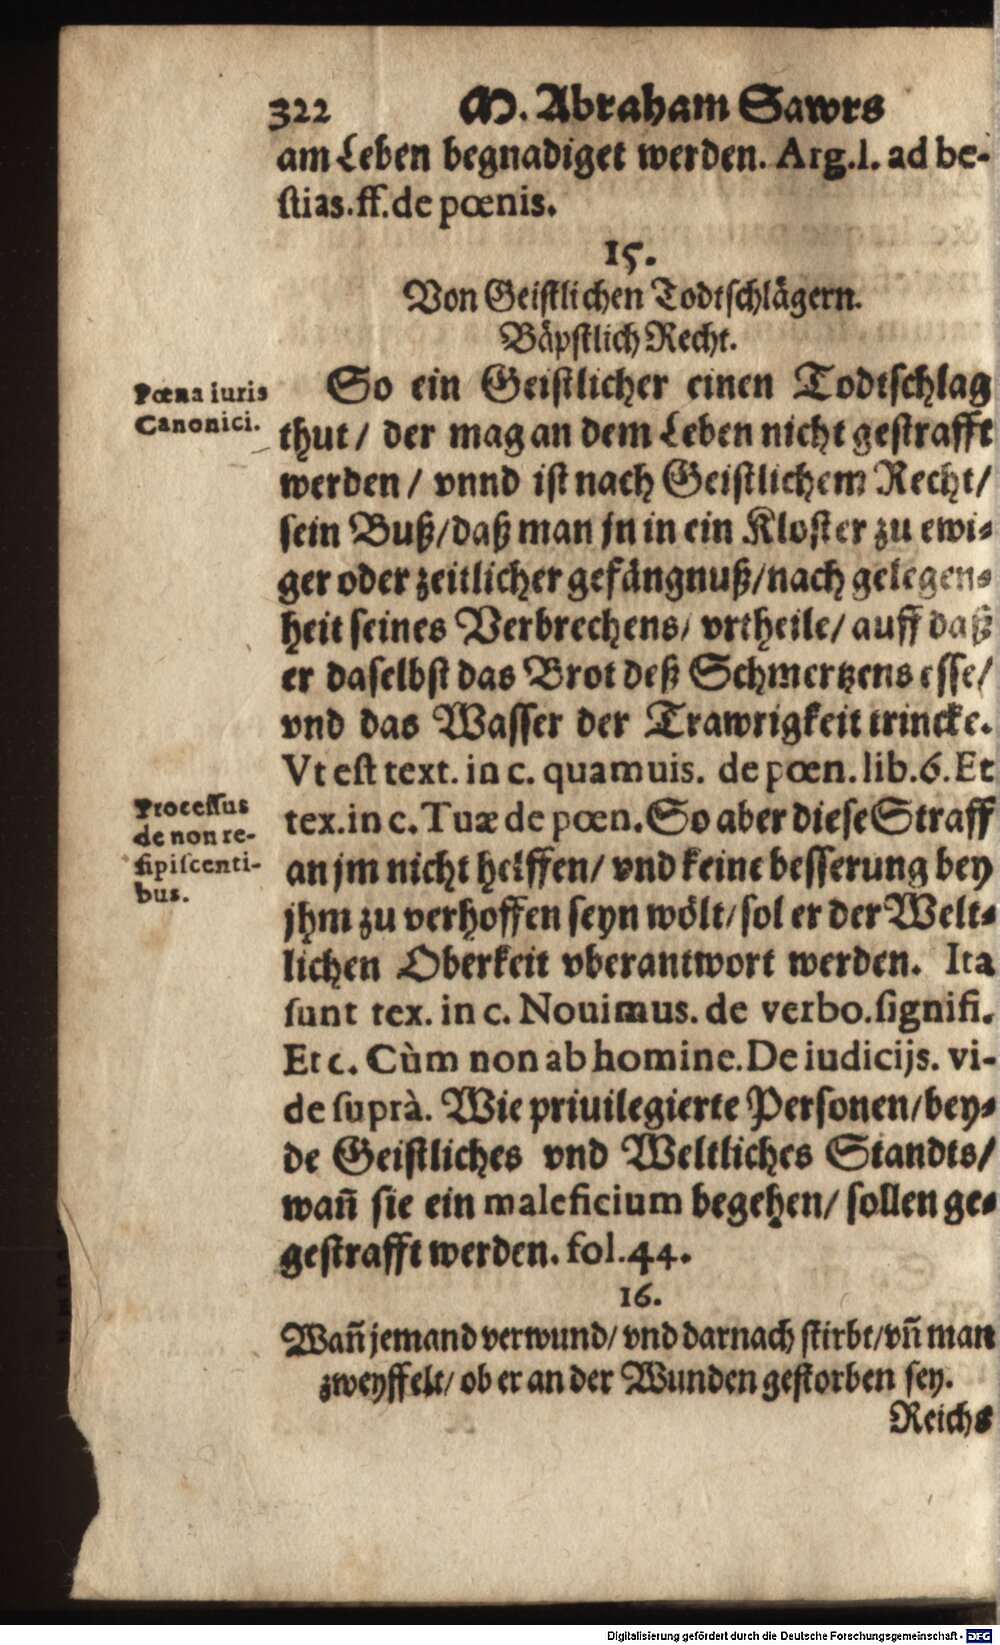 322 M. Abraham Sawrs
am Leben begnadiget werden. Arg.l. ad be-
stias.ff.de pœnis.
15.
Von Geistlichen Todtschlägern.
Bäpstlich Recht.
Pœna iuris
Canonici.
So ein Geistlicher einen Todtschlag
thut / der mag an dem Leben nicht gestrafft
werden / vnnd ist nach Geistlichem Recht /
sein Buß / daß man jn in ein Kloster zu ewi-
ger oder zeitlicher gefängnuß / nach gelegen-
heit seines Verbrechens / vrtheile / auff daß
er daselbst das Brot deß Schmertzens esse /
vnd das Wasser der Trawrigkeit trincke.
Vt est text. in c. quamuis. de pœn. lib. 6. Et
Processus
de non re-
sipiscenti-
bus.
tex. in c. Tuæ de pœn. So aber diese Straff
an jm nicht helffen / vnd keine besserung bey
jhm zu verhoffen seyn wölt / sol er der Welt-
lichen Oberkeit vberantwort werden. Ita
sunt tex. in c. Nouimus. de verbo. signifi.
Et c. Cùm non ab homine. De iudicijs. vi-
de suprà. Wie priuilegierte Personen / bey-
de Geistliches vnd Weltliches Standts /
wañ sie ein maleficium begehen / sollen ge-
gestrafft werden. fol. 44.
16.
Wañ jemand verwund / vnd darnach stirbt / vñ man
zweyffelt / ob er an der Wunden gestorben sey.
Reichs
Digitalisierung gefördert durch die Deutsche Forschungsgemeinschaft - DFG